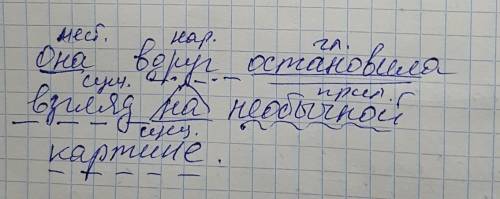 мест. нар. гл.
она вдруг остановила
сущ. прил.
взгляд на необычной
сущ.
картине.